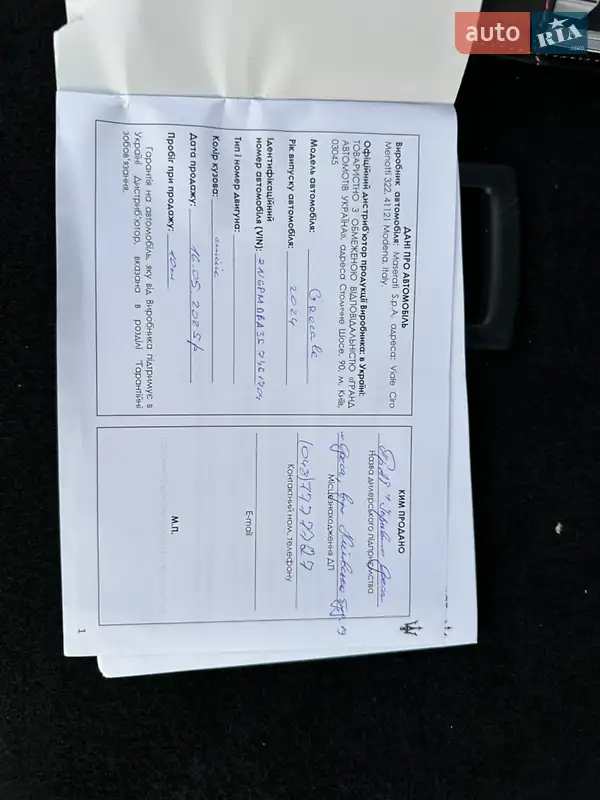 auto RIA.com
ДАНІ ПРО АВТОМОБІЛЬ
Виробник автомобіля: Maserati S.p.A, адреса: Viale Ciro
Menotti 322, 41121 Modena, Italy.
Офіційний дистриб'ютор продукції Виробника: в Україні:
ТОВАРИСТВО З ОБМЕЖЕНОЮ ВІДПОВІДАЛЬНІСТЮ «ГРАНД
АВТОМОТІВ УКРАЇНА», адреса Столичне Шосе, 90, м. Київ,
03045
Модель автомобіля: Grecale
Рік випуску автомобіля: 2024
Ідентифікаційний
номер автомобіля (VIN):
Тип і номер двигуна:
Колір кузова: синій
Дата продажу: 16.05.2025р
Пробіг при продажу: 10км
Гарантія на автомобіль, яку від Виробника підтримує в
Україні Дистриб'ютор, вказана в розділі "Гарантійні
зобов'язання.
КИМ ПРОДАНО
Назва дилерського підприємства
Місцезнаходження ДП
Контактний ном. телефону
E-mail
М.П.
1